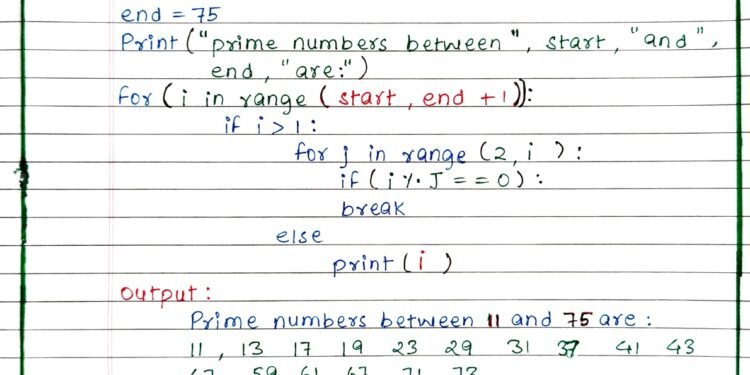 end = 75
Print ("prime numbers between", start, "and",
end, "are:")
For (i in range (start, end +1)):
if i > 1:
for j in range (2, i ):
if (i % J == 0):
break
else
print (i )
output:
Prime numbers between 11 and 75 are:
11, 13 17 19 23 29 31 37 41 43
59 61 67 71 73